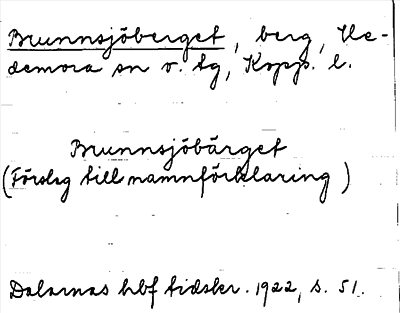 Brunnsjöberget, berg, He-
demora sn o. tg, Kopp. l.
Brunnsjöbärget
(Förslag till namnförklaring)
Dalarnas hbf tidskr. 1922, s. 51.